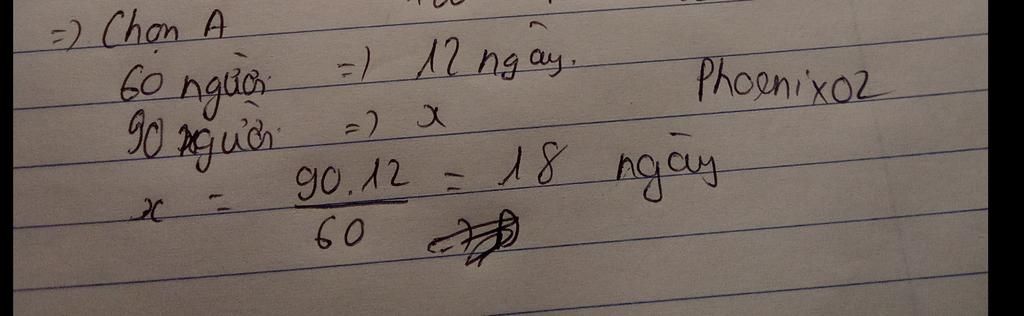 =) Chọn A
60 người =) 12 ngày.
Phoenix02
90 người =) x
x = 90.12 / 60 = 18 ngày